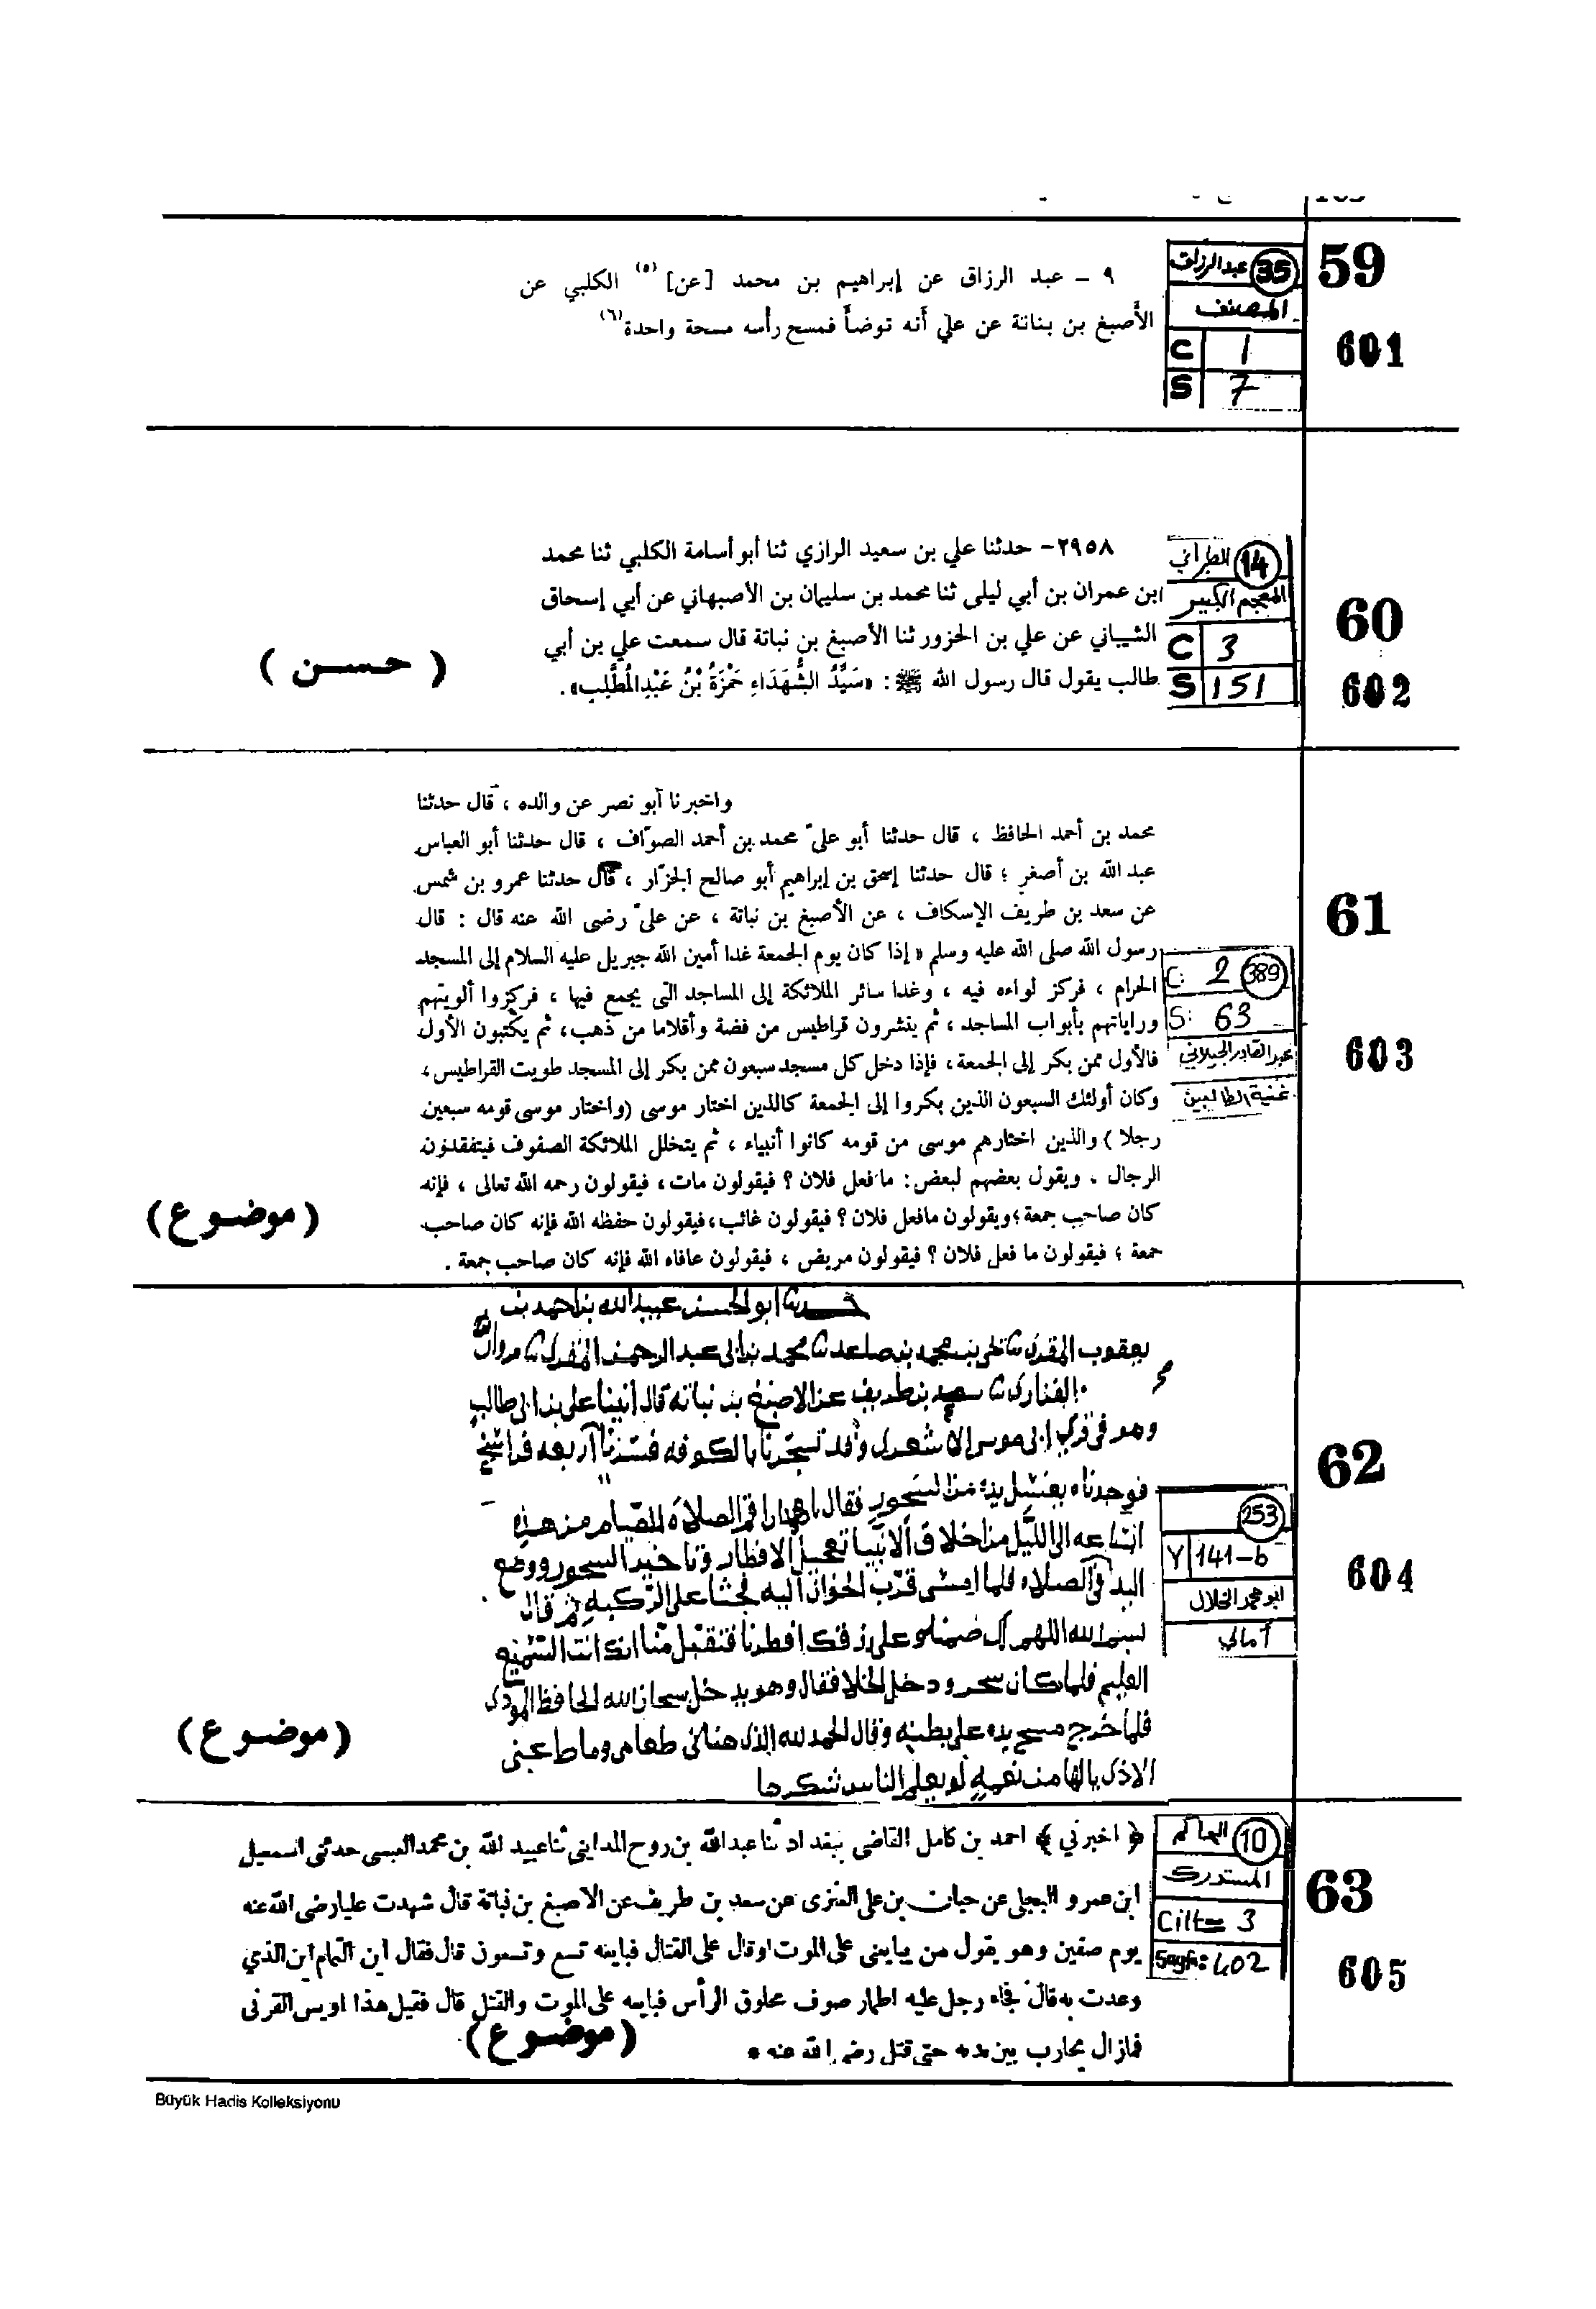 59
601
عبد الرزاق 35
المصنف
C 1
S 7
٩ – عبد الرزاق عن إبراهيم بن محمد [عن] (٥) الكلبي عن
الأصبغ بن بناتة عن علي أنه توضأ فمسح رأسه مسحة واحدة(٦)
60
602
الطبراني 14
المعجم الكبير
C 3
S 151
٢٩٥٨- حدثنا علي بن سعيد الرازي ثنا أبو أسامة الكلبي ثنا محمد
ابن عمران بن أبي ليلى ثنا محمد بن سليمان بن الأصبهاني عن أبي إسحاق
الشيباني عن علي بن الحزور ثنا الأصبغ بن نباتة قال سمعت علي بن أبي
طالب يقول قال رسول الله ﷺ : «سَيِّدُ الشُّهَدَاءِ حَمْزَةُ بْنُ عَبْدِالمُطَّلِبِ».
( حسن )
61
603
C: 2 389
S: 63
عبد القادر الجيلاني
غنية الطالبين
واخبرنا أبو نصر عن والده ، قال حدثنا
محمد بن أحمد الحافظ ، قال حدثنا أبو علىّ محمد بن أحمد الصوّاف ، قال حدثنا أبو العباس
عبد الله بن أصغر ؛ قال حدثنا إسحق بن إبراهيم أبو صالح الجزّار ، قال حدثنا عمرو بن شمس
عن سعد بن طريف الإسكاف ، عن الأصبغ بن نباتة ، عن علىّ رضى الله عنه قال : قال
رسول الله صلى الله عليه وسلم « إذا كان يوم الجمعة غدا أمين الله جبريل عليه السلام إلى المسجد
الحرام ، فركز لواءه فيه ، وغدا سائر الملائكة إلى المساجد التى يجمع فيها ، فركزوا ألويتهم
وراياتهم بأبواب المساجد ، ثم ينشرون قراطيس من فضة وأقلاما من ذهب، ثم يكتبون الأول
فالأول ممن بكر إلى الجمعة، فإذا دخل كل مسجد سبعون ممن بكر إلى المسجد طويت القراطيس،
وكان أولئك السبعون الذين بكروا إلى الجمعة كالذين اختار موسى (واختار موسى قومه سبعين
رجلا ) والذين اختارهم موسى من قومه كانوا أنبياء ، ثم يتخلل الملائكة الصفوف فيتفقدون
الرجال . ويقول بعضهم لبعض : ما فعل فلان ؟ فيقولون مات ، فيقولون رحمه الله تعالى ، فإنه
كان صاحب جمعة ؛ويقولون مافعل فلان ؟ فيقولون غائب، فيقولون حفظه الله فإنه كان صاحب
جمعة ؛ فيقولون ما فعل فلان ؟ فيقولون مريض ، فيقولون عافاه الله فإنه كان صاحب جمعة .
(موضوع)
62
604
253
Y 141-b
ابو محمد الخلال
أمالي
ابو الحسن عبيد الله بن احمد بن
يعقوب المقرئ ثنا يحيى بن محمد بن صاعد ثنا محمد بن ابى عبد الرحمن المقرئ ثنا مروان
الفزارى ثنا سعيد بن طريف عن الاصبغ بن نباته قال اتينا على بن ابى طالب
وهو فى قرب ابى موسى الاشعرى وقد تسحرنا بالكوفه فسرنا اربعه فراسخ
فوجدناه يغسل يده من السحور فقال الصلاة
الى الليل من اخلاق الانبيا تعجيل الافطار وتاخير السحور ووضع
اليد فى الصلاه فلما امسى قرب الخوان اليه فجثا على الركبه ثم قال
بسم الله اللهم لك صمنا وعلى رزقك افطرنا فتقبل منا انك انت السميع
العليم فلما كان سحر ودخل الخلا فقال وهو يدخل سبحان الله الحافظ المودى
فلما خرج مسح يده على بطنه وقال الحمد لله الذى هنانى طعامى وماط عنى
الاذى يالها من نعمه لو يعلم الناس شكرها
(موضوع)
63
605
الحاكم 10
المستدرك
Cilt= 3
Sayfa: 402
﴿ اخبرني ﴾ احمد بن كامل القاضى ببغداد ثنا عبد الله بن روح المدايني ثنا عبيد الله بن محمد العبسى حدثني اسمعيل
ابن عمرو البجلى عن حبان بن على العنزى عن سعد بن طريف عن الاصبغ بن نباتة قال شهدت عليا رضى الله عنه
يوم صفين وهو يقول من يبايعنى على الموت اوقال على القتال فبايعه تسع وتسعون قال فقال اين التمام اين الذي
وعدت به قال فجاء رجل عليه اطمار صوف محلوق الرأس فبايعه على الموت والقتل قال فقيل هذا اويس القرنى
فمازال يحارب بين يديه حتى قتل رضى الله عنه *
(موضوع)
Büyük Hadis Kolleksiyonu